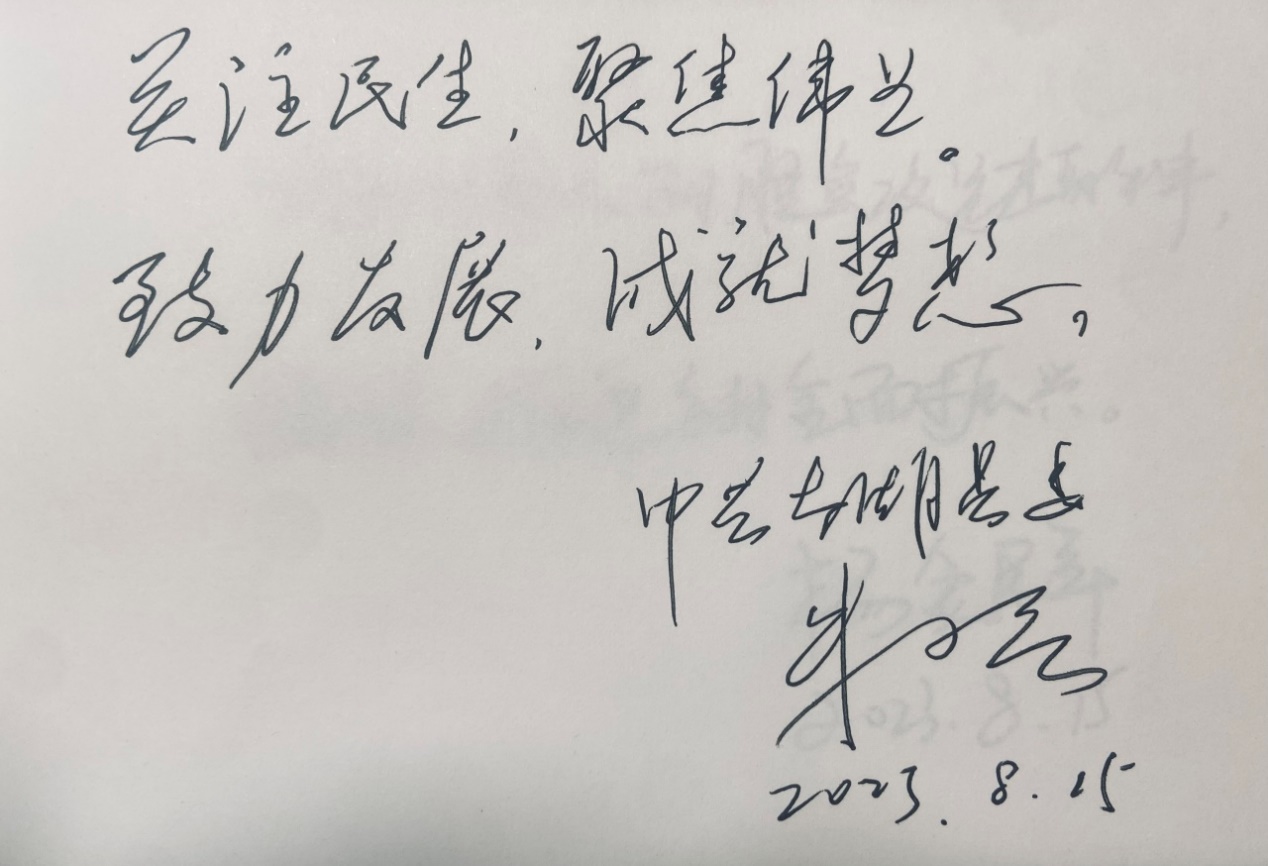 关注民生，聚焦伟业。
致力发展，成就梦想，
中共太湖县委
朱
2023.8.15